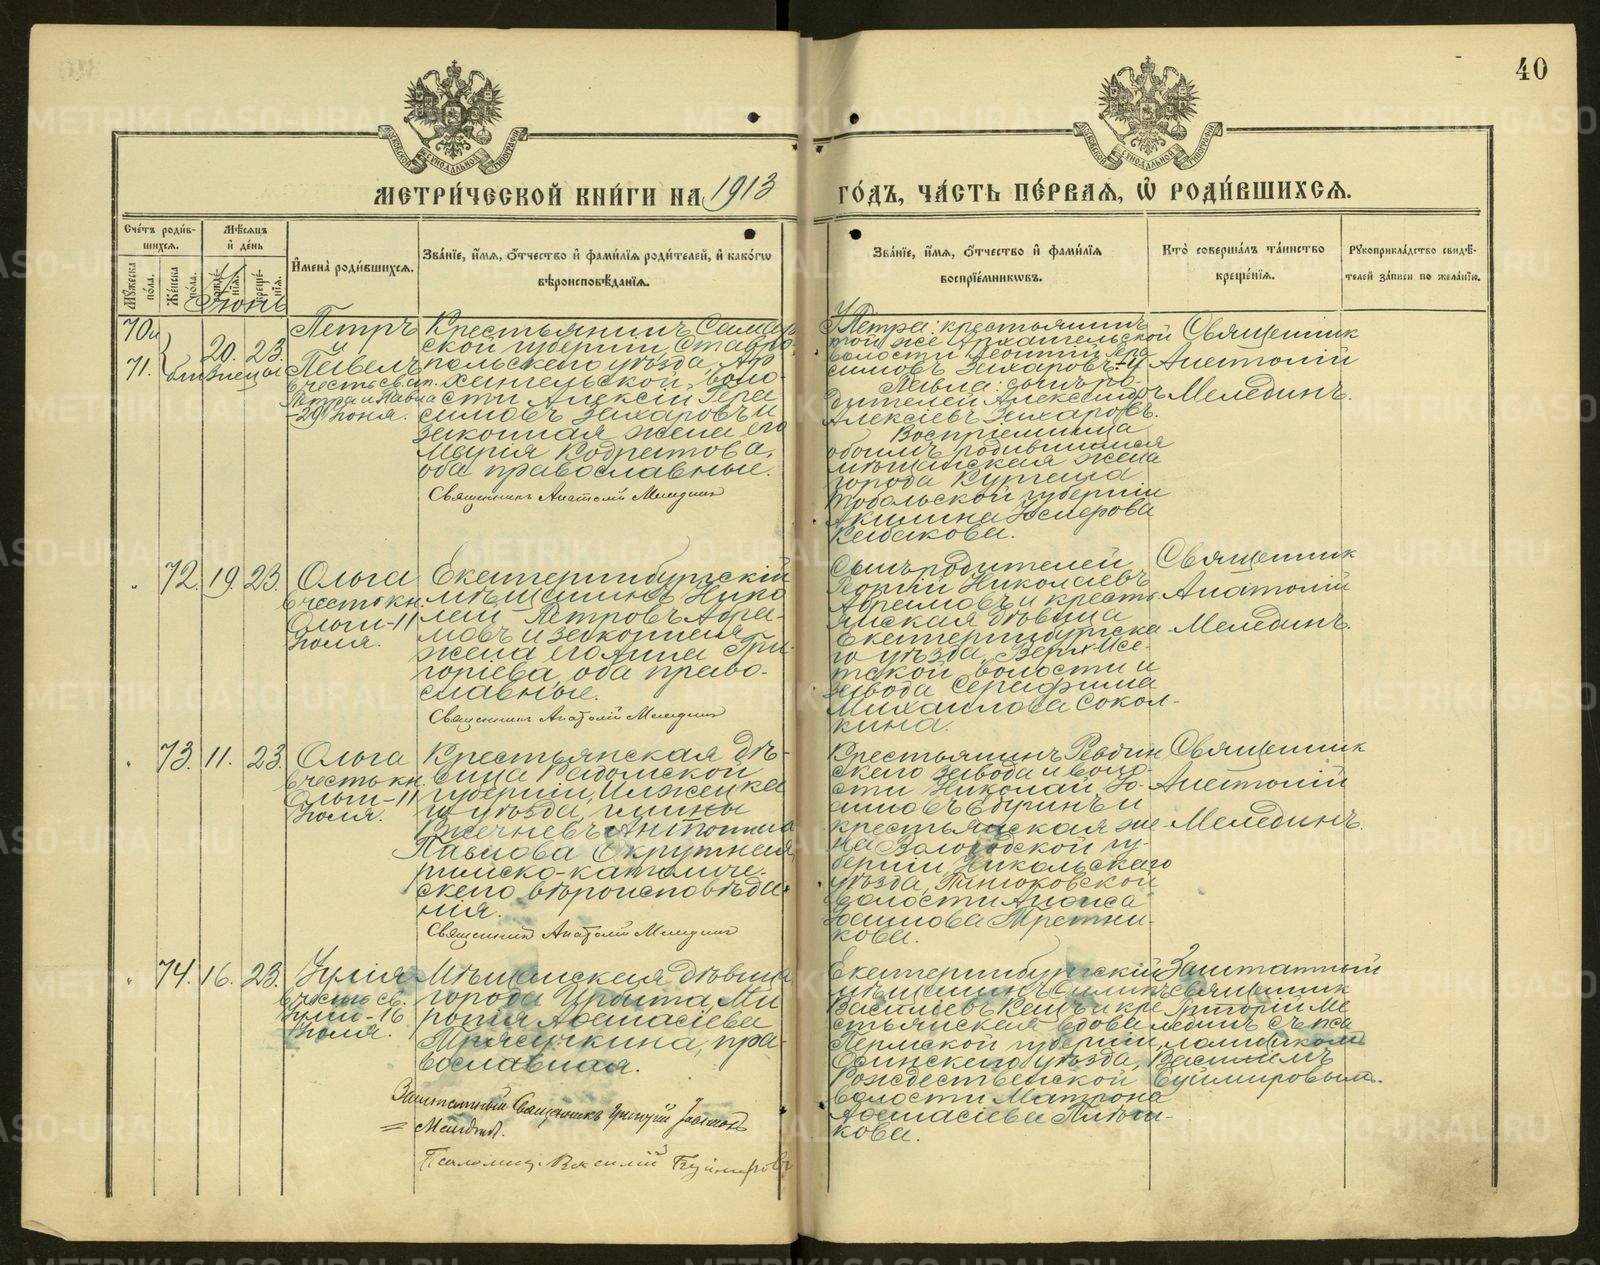 40
МЕТРИ́ЧЕСКОЙ КНИ́ГИ НА 1913 ГО́ДЪ, ЧА́СТЬ ПЕ́РВАѦ, Ѡ҆ РОДИ́ВШИХСѦ.
Сче́тъ роди́в-
шихсѧ.
Мѣ́сѧцъ
и҆ де́нь
Мꙋ́жеска по́ла.
Же́нска по́ла.
рожде́нїѧ.
креще́нїѧ.
И҆мена̀ роди́вшихсѧ.
Зва́нїе, и҆́мѧ, ѻ҆́тчество и҆ фами́лїѧ роди́телей, и҆ како́гѡ
вѣроисповѣ́данїѧ.
Зва́нїе, и҆́мѧ, ѻ҆́тчество и҆ фами́лїѧ
воспрїе́мникѡвъ.
Кто̀ соверша́лъ та́инство
креще́нїѧ.
Рꙋкоприкла́дство свидѣ́-
телей за́писи по жела́нїю.
Іюнь
70 и
71.
близнецы
20. 23.
Петръ
и
Павелъ
въ честь св. ап.
Петра и Павла
-29 Іюня.
Крестьянинъ Самар
ской губерніи, Ставро
польскаго уѣзда, Ар
хангельской воло-
сти Алексій Гера
симовъ Захаровъ и
законная жена его
Марія Кодратова,
оба православные.
Священникъ Анатолій Мелединъ
Петра: крестьянинъ
той же Архангельской
волости Леонтій Гера
симовъ Захаровъ. – У
Павла: сынъ ро-
дителей Александръ
Алексіевъ Захаровъ.
Воспріемница
обоимъ родившимся
мѣщанская жена
города Кургана
Тобольской губерніи
Акилина
Кабакова.
Священник
Анатолій
Мелединъ.
72. 19. 23.
Ольга
въ честь кн.
Ольги-11
Іюля.
Екатеринбургскій
мѣщанинъ Нико
лай Петровъ Абра-
мовъ и законная
жена его Анна Гри-
горіева, оба право-
славные.
Священникъ Анатолій Мелединъ
Сынъ родителей
Георгій Николаевъ
Абрамовъ и кресть
янская дѣвица
Екатеринбургска
го уѣзда, Верх-Исе-
тской волости и
завода Серафима
Михаилова Сокол-
кина.
Священник
Анатолій
Мелединъ.
73. 11. 23.
Ольга
въ честь кн.
Ольги-11
Іюля.
Крестьянская дѣ-
вица Радомской
губерніи,
уѣзда, гмины
Антонина
Павлова Окрутная
римско-католиче-
скаго вѣроисповѣда-
нія.
Священникъ Анатолій Мелединъ
Крестьянинъ Ревдин
скаго завода и воло-
сти Николай Зо-
симовъ и
крестьянская же
на Вологодской гу-
берніи Никольскаго
уѣзда,
волости
Третни-
кова.
Священник
Анатолій
Мелединъ.
74. 16. 23.
Іулія
въ честь св.
Іуліи-16
Іюля.
Мѣщанская дѣвица
города Ирбита Ми
ропія Аѳанасіева
Трясучкина, пра-
вославная.
Заштатный Священникъ Григорій
Мелединъ.
Псаломщ. Василій Буймировъ
Екатеринбургскій
мѣщанинъ
Василіевъ и кре
стьянская вдова
Пермской губерніи,
Осинскаго уѣзда,
Рождественской
волости Матрона
Аѳанасіева
кова.
Заштатный
священник
Григорій Ме
лединъ съ пса
ломщикомъ
Василіемъ
Буймировым.
METRIKI.GASO-URAL.RU